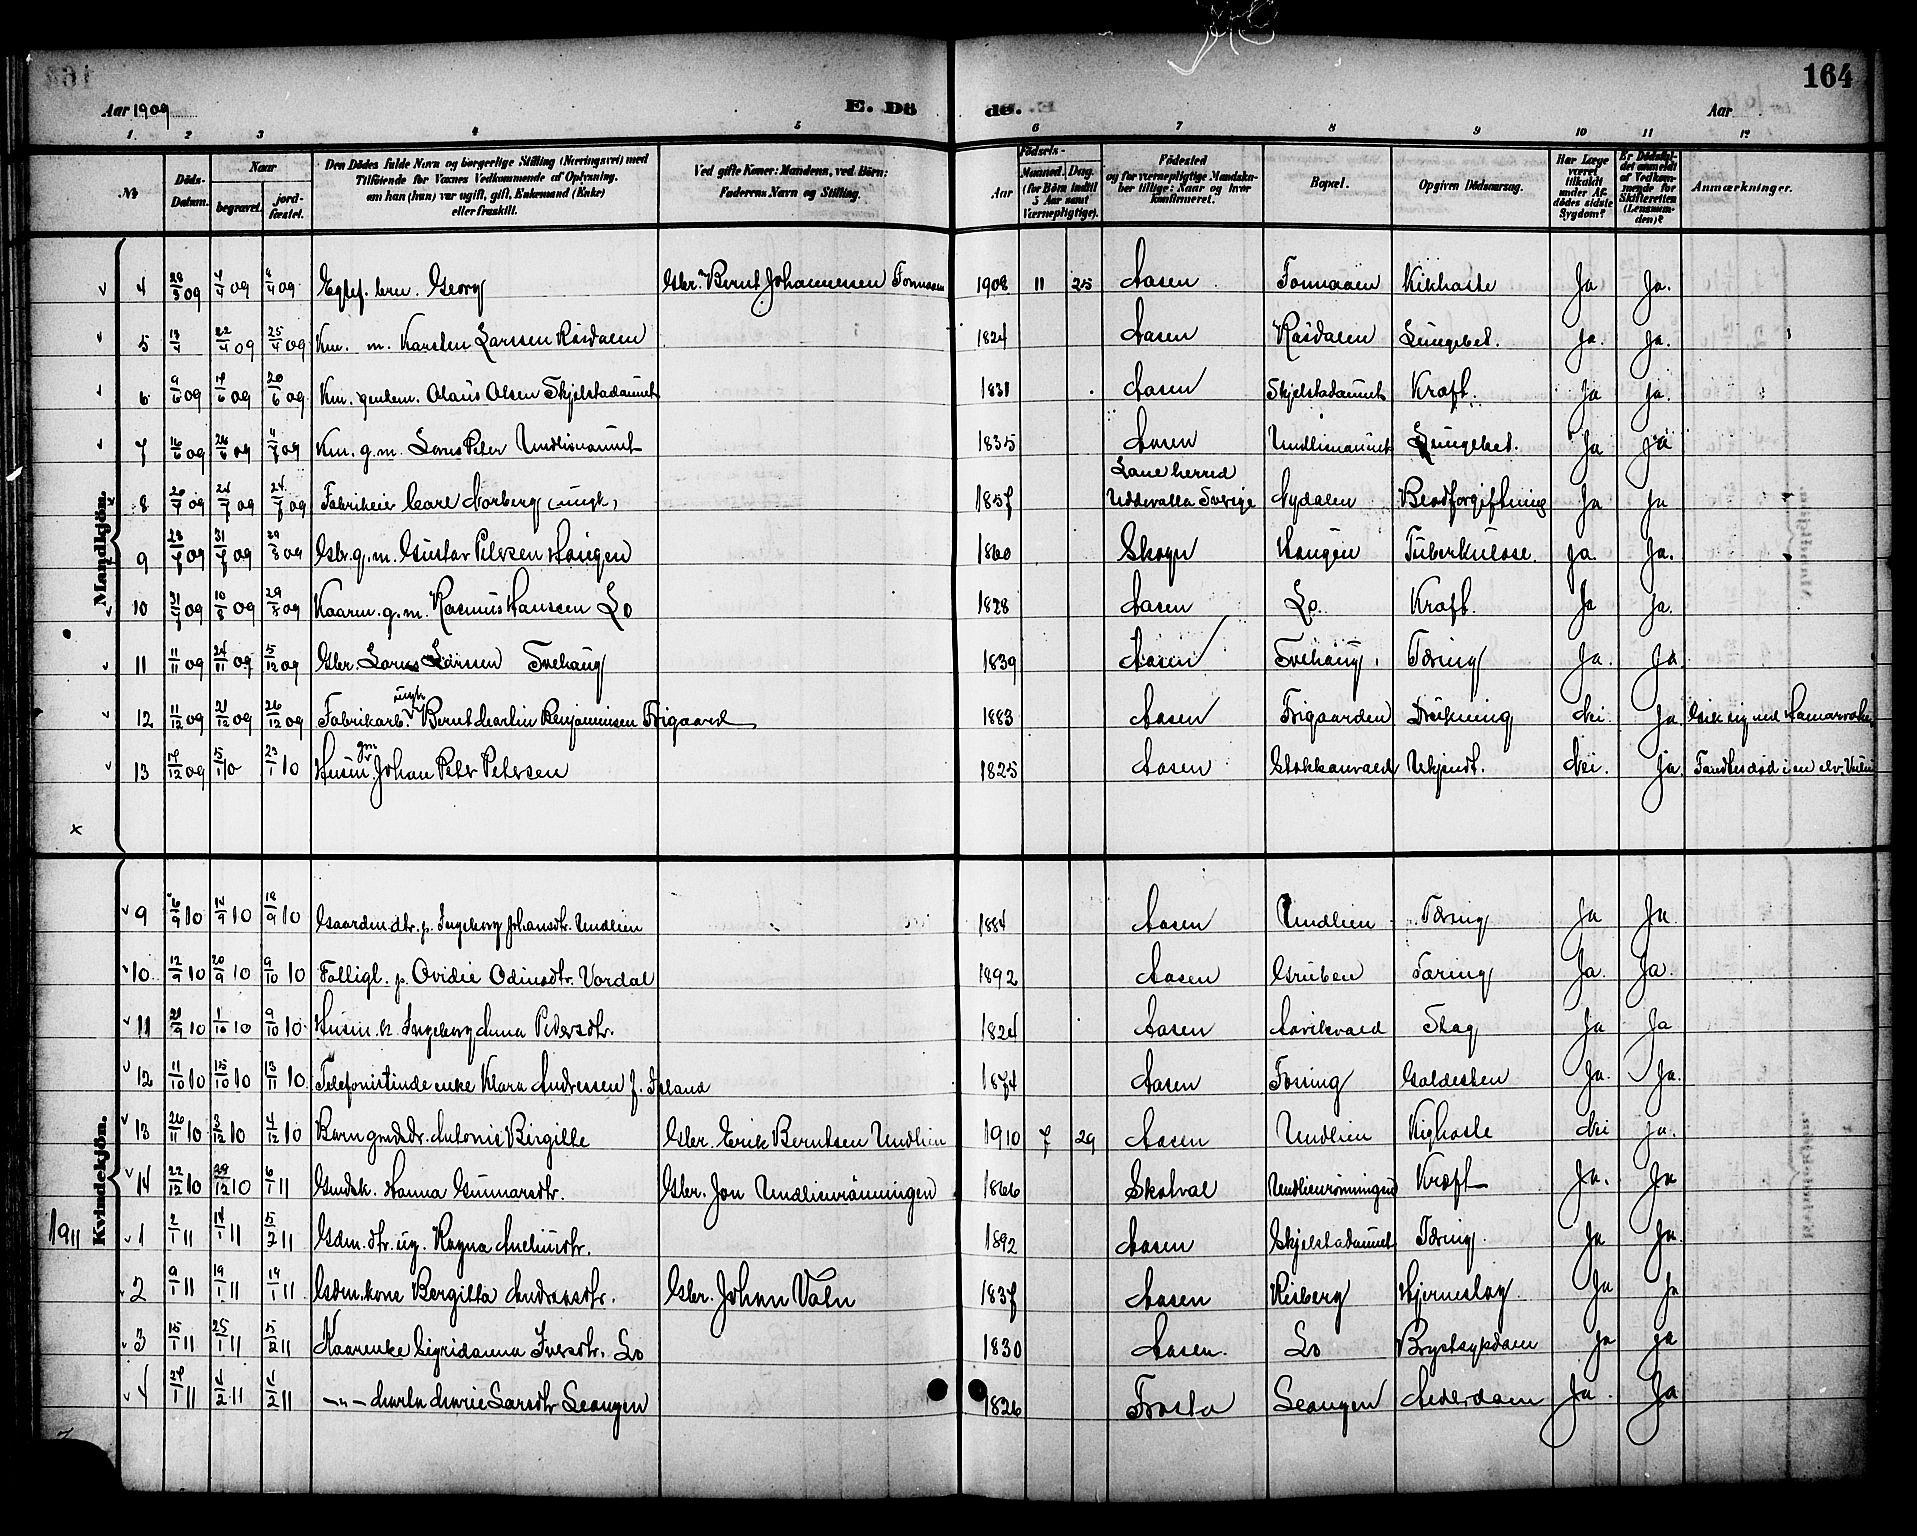 164
Aar 1909
E. Dö
de.
Aar
1.
2
3
4
5
6
7
8
9
10
11
12
No
Döds-Datum.
Naar
begravet.
jord-fæstet.
Den Dödes fulde Navn og borgerlige Stilling (Næringsvei) med
Tilföiende for Voxnes Vedkommende af Oplysning.
om han (hun) var ugift, gift, Enkemand (Enke)
eller fraskilt.
Ved gifte Koner: Mandens, ved Börn:
Faderens Navn og Stilling.
Födsels-
Aar
Maaned.
Dag.
(for Börn indtil
5 Aar samt
Værnepligtige).
Födested
og for værnepligtige Mandska-
ber tillige: Naar og hvor
konfirmeret.
Bopæl.
Opgiven Dödsaarsag.
Har Læge
været
tilkaldt
under Af-
dödes sidste
Sygdom?
Er Dödsfal-
det anmeldt
af Vedkom-
mende for
Skifteretten
(Lensman-
den)?
Anmærkninger.
Mandkjön.
4 28/3 09 4/4 09 4/4 09 Egtef. brn. Georg Gbr. Bernt Johannessen Fonnaaen 1908 11 25 Aasen Fonnaaen Kikhoste Ja Ja.
5 13/4 22/4 09 25/4 09 Km. m. Karsten Larssen Raádalen 1824 Aasen Raádalen Lungebet. Ja. Ja.
6 9/6 09 17/6 09 20/6 09 Km. Olaus Olsen Skjelstadaunet 1831 Aasen Skjelstadaunet Kræft. Ja Ja.
7 16/6 09 26/6 09 4/7 09 Km. g.m. Lorns Peter Undlienaunet 1835 Aasen Undlienaunet Lungebet. Ja Ja
8 20/7 09 24/7 09 24/7 09 Fabrikeier Carl Norberg (ungk.) 1857 Lane herred Uddevalla Sverige Nydalen Blodforgiftning Ja Ja
9 23/7 09 31/7 09 29/8 09 Gbr. g.m. Gustav Petersen Haugen 1860 Skogn Haugen Tuberkulose. Ja Ja.
10 31/7 09 10/8 09 29/8 09 Kaarm. g.m. Rasmus Hanssen Lo 1828 Aasen Lo. Kræft. Ja Ja.
11 11/11 09 24/11 09 5/12 09 Gbr. Lorns Larsen Tvehaug 1839 Aasen Tvehaug. Tæring Ja. Ja.
12 11/12 09 21/12 09 26/12 09 Fabrikarb. ungk. Bernt Martin Benjaminsen Trigaard 1883 Aasen Trigaarden Drukning Nei. Ja.
13 17/12 09 5/1 10 23/1 10 Husm. gm. Johan Peter Petersen 1825 Aasen Stokkanvald Ukjendt. Nei. Ja. Fandtes död i en elv.
x
Kvindekjön.
9 6/9 10 12/9 10 18/9 10 Gaardm.dtr. p. Ingeborg Johansdtr. Undlien 1884 Aasen Undlien Tæring Ja Ja.
10 12/9 10 20/9 10 9/10 10 Fattigl. p. Ovidie Odinsdtr. Vordal 1892 Aasen Gruben Tæring Ja. Ja.
11 21/9 10 1/10 10 9/10 10 Husm. k. Ingeborg Anna Pedersdtr. 1824 Aasen Aavikvald Slag Ja Ja
12 11/10 10 15/10 10 13/11 10 Telefonistinde enke Klara Andressen f. Island 1874 Aasen Fossing Galdesten Ja. Ja.
13 26/11 10 3/12 10 4/12 10 Barn gmds dr. Antonie Birgitte Gbr. Erik Berntsen Undlien 1910 7 29 Aasen Undlien Kighoste Nei Ja.
14 22/12 10 29/12 10 6/1 11 Gmdsk. Hanna Gunnarsdtr. Gbr. Jon Undlienrönningen 1866 Skatval Undlienrönningen Kræft Ja. Ja
1911
1 2/1 11 14/1 11 5/2 11 Gdm. dtr. ug. Ragna Anthinsdtr. 1892 Aasen Skjelstadaunet Tæring. Ja Ja.
2 9/1 11 19/1 11 19/1 11 Gdm. kone Bergitta Andreasdtr. Gbr. Johan Valn 1837 Aasen Risberg Hjerneslag. Ja Ja
3 15/1 11 25/1 11 5/2 11 Kaarenke Sigridanna Iversdtr. Lo 1830 Aasen. Lo Brystsygdom Ja Ja
4 27/1 11 4/2 11 4/2 11 —"— Marta Marie Larsdtr Leangen 1826 Frosta Leangen Alderdom Ja. Ja